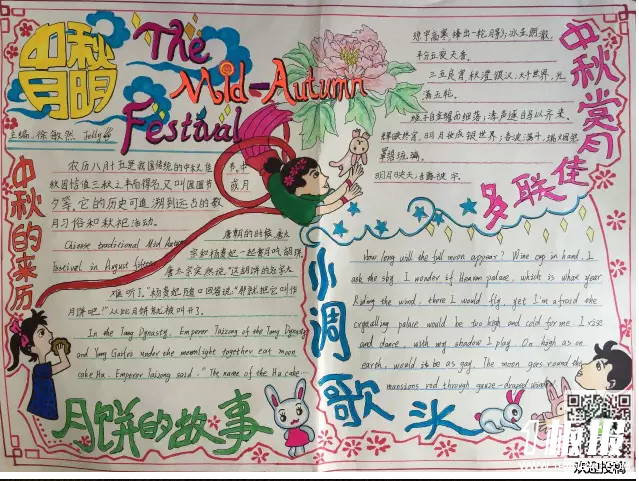 中秋
月明
The
Mid-Autumn
Festival
主编:徐敏然 Jelly
中秋的来历
农历八月十五是我国传统的中秋佳节。中
秋因恰值三秋之半而得名,又叫团圆节或月
夕等,它的历史可追溯到远古的敬
月习俗和秋祀活动。
Chinese traditional Mid Autumn
Festival in August fifteen
唐朝的时候,唐太
宗和杨贵妃一起赏月吃胡饼,
唐太宗突然说:“这胡饼的名字太
难听了。”杨贵妃随口回答说:“那就把它叫作
月饼吧”从此月饼就被叫开了。
In the Tang Dynasty, Emperor Taizong of the Tang Dynasty
and Yang Guifei under the moonlight together eat moon
cake Hu. Emperor Taizong said, "The name of the Hu cake...
月饼的故事
中秋赏月
多联佳
平分五夜天香。
三五良宵,秋澄银汉;大千世界,光
满玉轮。
明月日映天;香飘彼岸。
小调
歌头
How long will the full moon appear? Wine cup in hand, I
ask the sky. I wonder if Heaven palace, which is what year
Riding the wind, there I would fly, yet I'm afraid the
crystalling palace would be too high and cold for me. I rise
and dance, with my shadow I play. On high as on
earth, would it be as gay. The moon goes round the
mansions red through gauze-draped window
快报
欢迎投稿